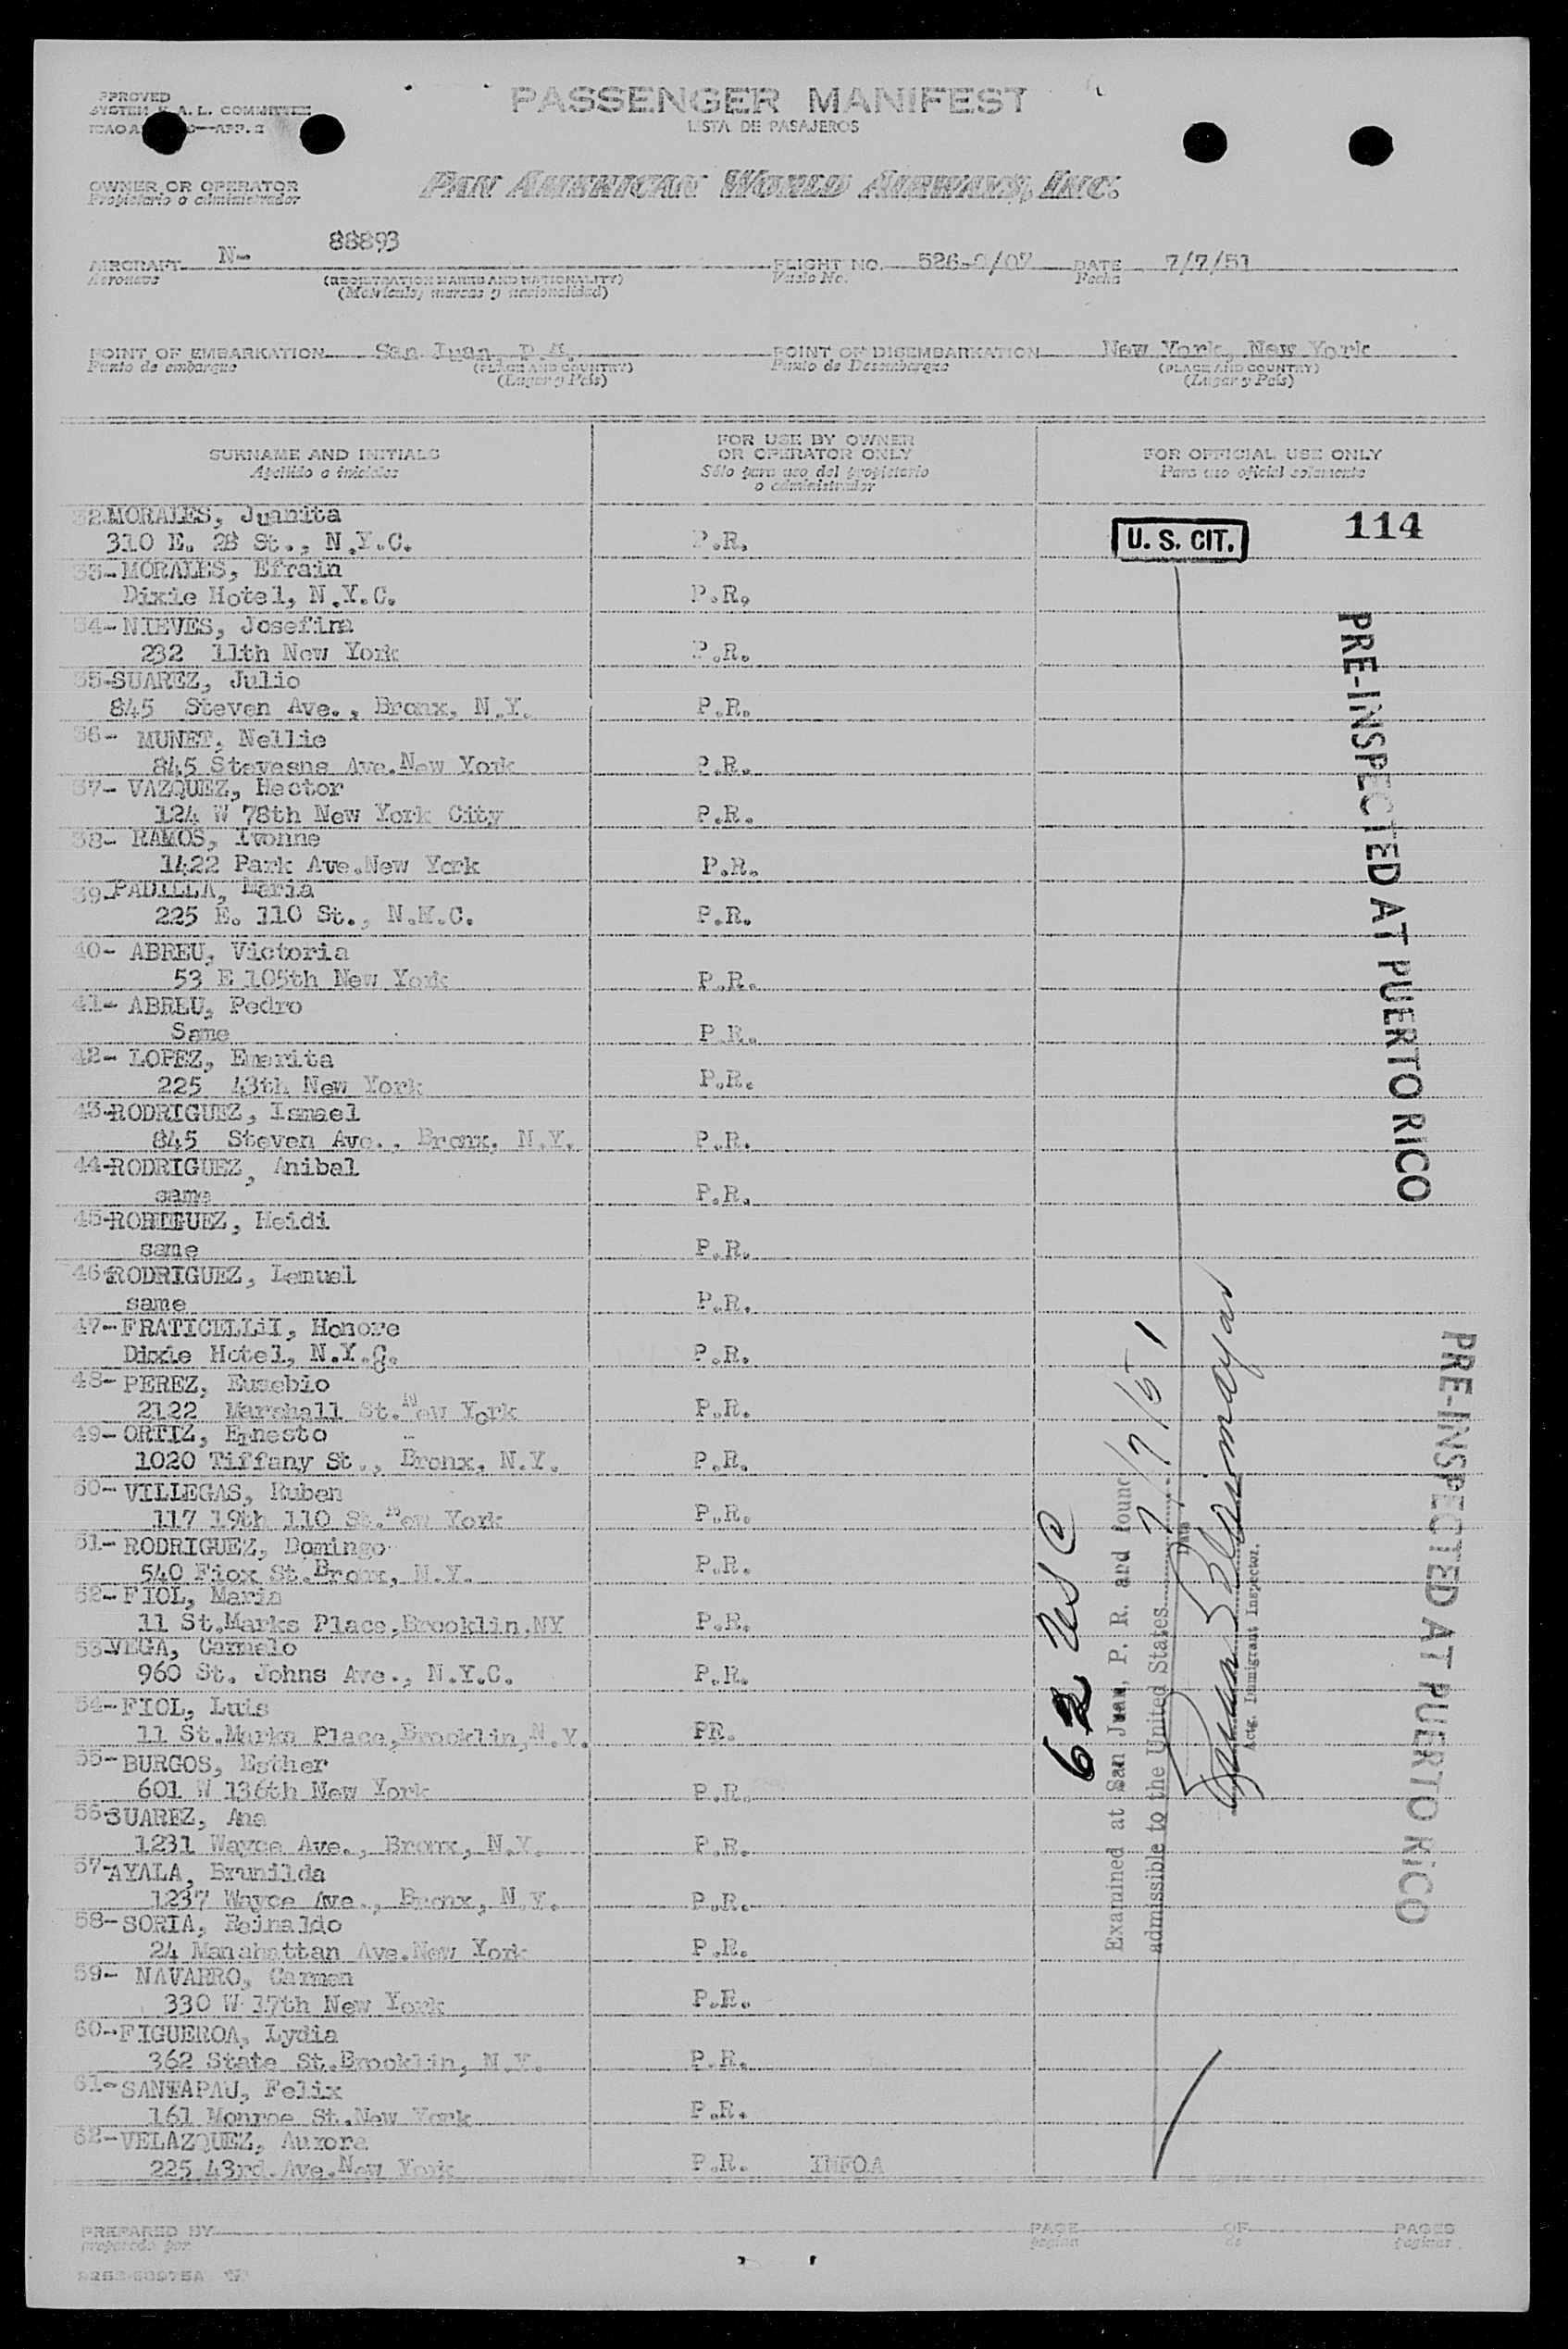 APPROVED
SYSTEM A.L. COMMITTEE
ICAO APP. 2
PASSENGER MANIFEST
LISTA DE PASAJEROS
OWNER OR OPERATOR
Propietario o administrador
PAN AMERICAN WORLD AIRWAYS, INC.
AIRCRAFT N- 88893
Aeronave
(REGISTRATION MARKS AND NATIONALITY)
(Matricula, marcas y nacionalidad)
FLIGHT NO. 526-0/07
Vuelo No.
DATE 7/7/51
Fecha
POINT OF EMBARKATION San Juan,
Punto de embarque
(PLACE AND COUNTRY)
(Lugar y Pais)
POINT OF DISEMBARKATION New York, New York
Punto de Desembarque
(PLACE AND COUNTRY)
(Lugar y Pais)
SURNAME AND INITIALS
Apellido e iniciales
FOR USE BY OWNER
OR OPERATOR ONLY
Sólo para uso del propietario
o administrador
FOR OFFICIAL USE ONLY
Para uso oficial solamente
32 MORALES, Juanita
310 E. 28 St., N.Y.C. P.R.
U. S. CIT.
114
33-MORALES, Efrain
Dixie Hotel, N.Y.C. P.R,
34-NIEVES, Josefina
232 11th New York P.R.
35-SUAREZ, Julio
845 Steven Ave., Bronx, N.Y. P.R.
36- MUNET, Nellie
845 Stevesns Ave.New York P.R.
37- VAZQUEZ, Hector
124 W 78th New York City P.R.
38- RAMOS, Ivonne
1422 Park Ave.New York P.R.
39-PADILLA, Maria
225 E. 110 St., N.Y.C. P.R.
40- ABREU, Victoria
53 E 105th New York P.R.
41- ABREU, Pedro
Same P.R.
42- LOPEZ, Emerita
225 43th New York P.R.
43-RODRIGUEZ, Ismael
845 Steven Ave., Bronx, N.Y. P.R.
44-RODRIGUEZ, Anibal
same P.R.
45-RODRIGUEZ, Heidi
same P.R.
46-RODRIGUEZ, Lemuel
same P.R.
47-FRATICELLiI, Honore
Dixie Hotel, N.Y.C. P.R.
48-PEREZ, Eusebio
2122 Marshall St.New York P.R.
49-ORTIZ, Ernesto
1020 Tiffany St., Bronx, N.Y. P.R.
50-VILLEGAS, Ruben
117 19th 110 St.New York P.R.
51-RODRIGUEZ, Domingo
540 Fiox St.Bronx, N.Y. P.R.
52-FIOL, Maria
11 St.Marks Place,Brooklin,NY P.R.
53-VEGA, Carmelo
960 St. Johns Ave., N.Y.C. P.R.
54-FIOL, Luis
11 St.Marks Place,Brocklin,N.Y. PR.
55-BURGOS, Esther
601 W 136th New York P.R.
56-SUAREZ, Ana
1231 Wayce Ave., Bronx, N.Y. P.R.
57-AYALA, Brunilda
1237 Wayce Ave., Bronx, N.Y. P.R.
58-SORIA, Reinaldo
24 Manahattan Ave.New York P.R.
59- NAVARRO, Carmen
330 W 17th New York P.R.
60-FIGUEROA, Lydia
362 State St.Brooklin, N.Y. P.R.
61-SANTAPAU, Felix
161 Monroe St.New York P.R.
62-VELAZQUEZ, Aurora
225 43rd.Ave.New York P.R. INFOA
PRE-INSPECTED AT PUERTO RICO
PRE-INSPECTED AT PUERTO RICO
62 USC
Examined at San Juan, P. R. and found
admissible to the United States 7/7/51
Date
Actg. Immigrant Inspector.
PREPARED BY
preparado por
PAGE OF PAGES
pagina de paginas